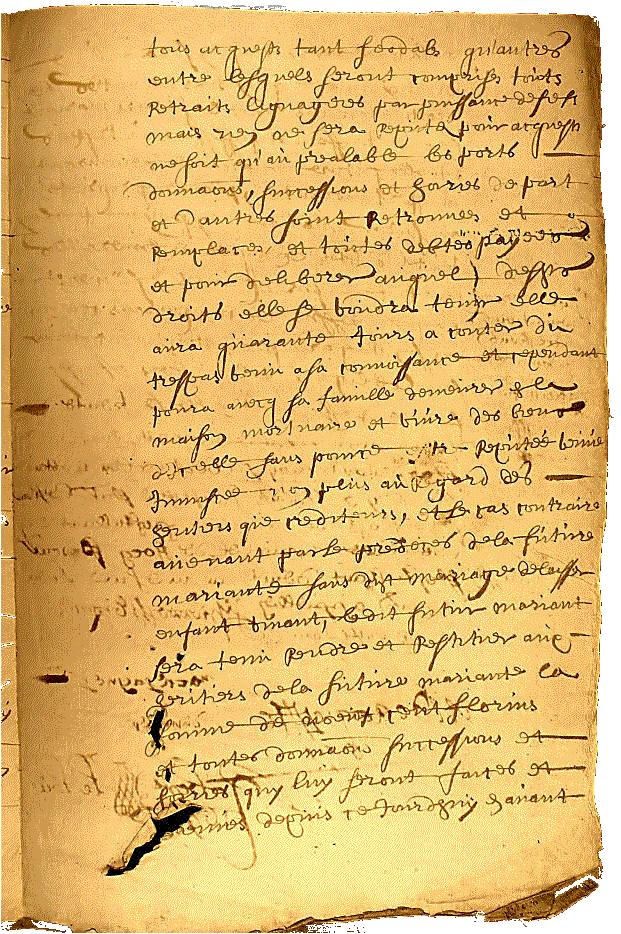 tous acquests tant feodals qu'autres
entre lesquels seront comprises touts
Retraits Lignageres par puissance de fief
mais rien ne sera Reputé pour acquest
ne soit qu'au prealable les ports
donnaons, successions et hoiries de part
et d'autres soint Retrouvees et
Remplaces, et toutes debtes payées
et pour deliberer auquel desdts
droits elle se voudra tenir elle
aura quarante jours a conter du
trespas venu a sa connoissance et cependant
poura avecq sa famille demeurer la
maison mortuaire et vivre des biens
d'icelle sans pour ce Reputée veuve
Immiscée non plus au Regard des
heritiers que crediteurs, et le cas contraire
avenant par le predeces de la future
mariante sans dudit Mariage delaisser
enfant vivant, ledit futur mariant
sera tenu Rendre et Restituer aux
heritiers de la future mariante la
somme de cent florins
et toutes donnaons successions et
hoiries quy luy seront faites et
depuis ce Jourdhuy en avant